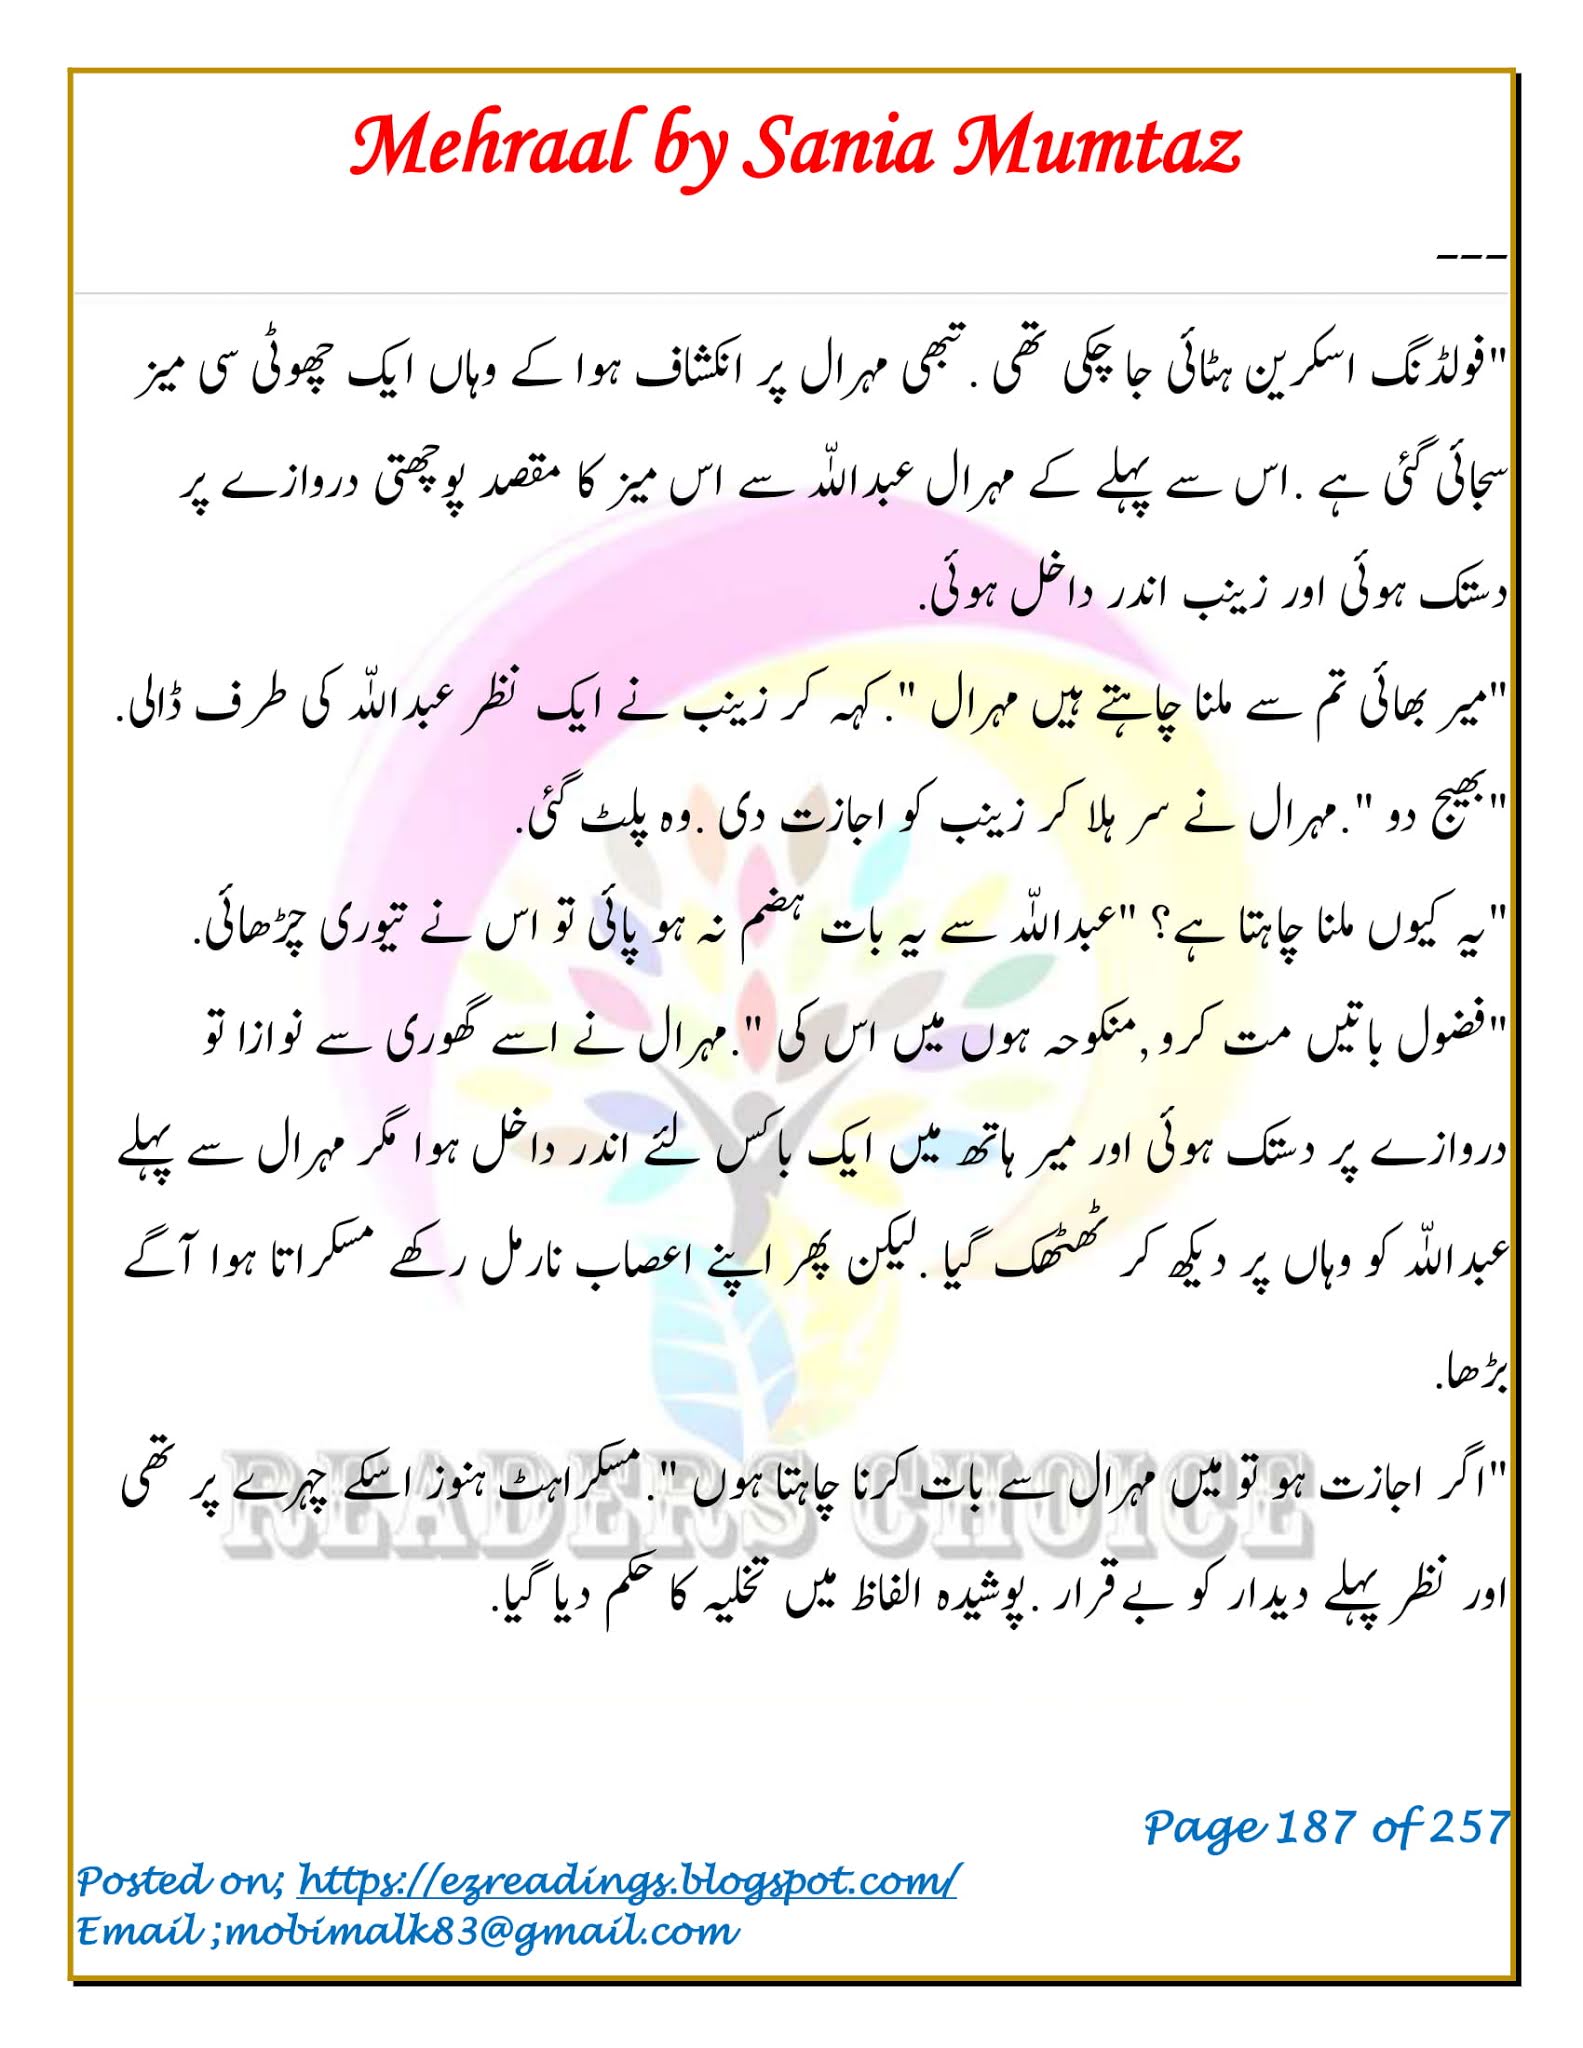 Mehraal by Sania Mumtaz
---
"فولڈنگ اسکرین ہٹائی جا چکی تھی . تبھی مہرال پر انکشاف ہوا کے وہاں ایک چھوٹی سی میز
سجائی گئی ہے .اس سے پہلے کے مہرال عبداللہ سے اس میز کا مقصد پوچھتی دروازے پر
دستک ہوئی اور زینب اندر داخل ہوئی.
"میر بھائی تم سے ملنا چاہتے ہیں مہرال ".کہہ کر زینب نے ایک نظر عبداللہ کی طرف ڈالی.
"بھیج دو ".مہرال نے سر ہلا کر زینب کو اجازت دی .وہ پلٹ گئی.
"یہ کیوں ملنا چاہتا ہے؟ "عبداللہ سے یہ بات ہضم نہ ہو پائی تو اس نے تیوری چڑھائی.
"فضول باتیں مت کرو ,منکوحہ ہوں میں اس کی ".مہرال نے اسے گھوری سے نوازا تو
دروازے پر دستک ہوئی اور میر ہاتھ میں ایک باکس لئے اندر داخل ہوا مگر مہرال سے پہلے
عبداللہ کو وہاں پر دیکھ کر ٹھٹھک گیا .لیکن پھر اپنے اعصاب نارمل رکھے مسکراتا ہوا آگے
بڑھا.
"اگر اجازت ہو تو میں مہرال سے بات کرنا چاہتا ہوں ".مسکراہٹ ہنوز اسکے چہرے پر تھی
اور نظر پہلے دیدار کو بے قرار .پوشیدہ الفاظ میں تخلیہ کا حکم دیا گیا.
READERS CHOICE
Page 187 of 257
Posted on; https://ezreadings.blogspot.com/
Email ;mobimalk83@gmail.com